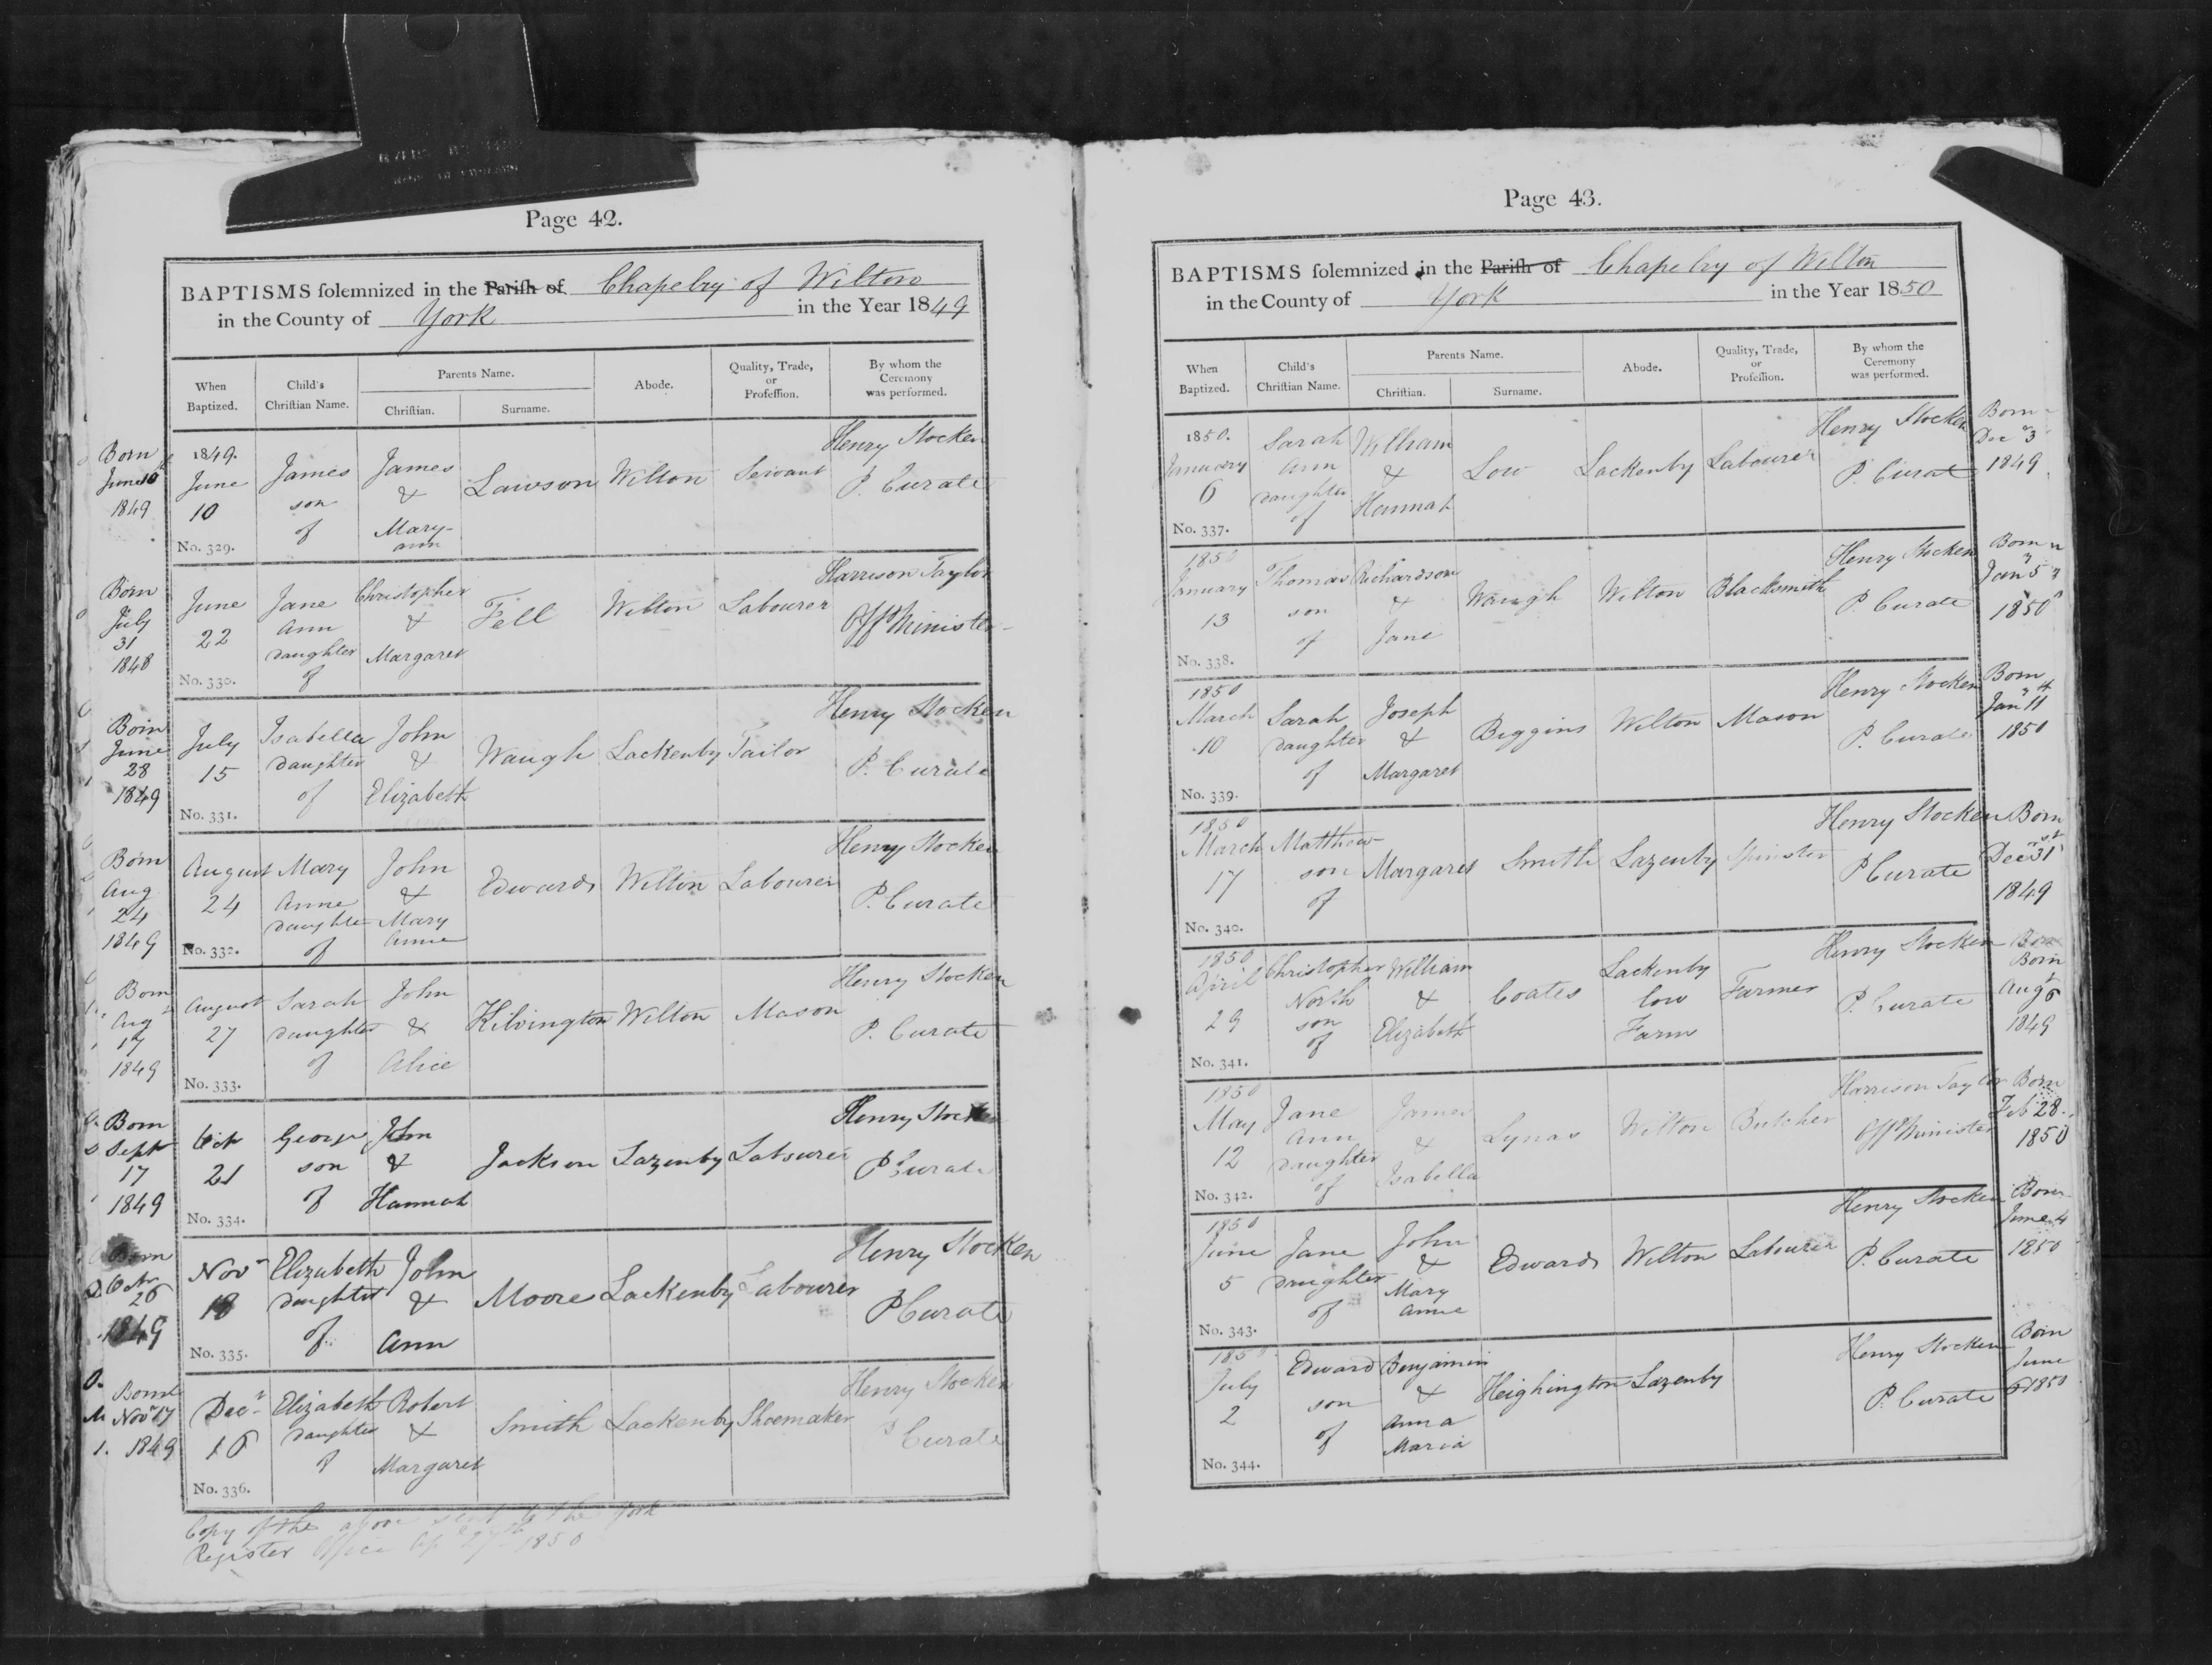 Page 42.
BAPTISMS solemnized in the Parish of Chapelry of Wilton
in the County of York in the Year 1849
When Baptized. Child's Christian Name. Parents Name. Christian. Surname. Abode. Quality, Trade, or Profession. By whom the Ceremony was performed.
Born June 10 1849
1849. June 10 No. 329.
James son of
James & Mary-ann
Lawson
Wilton
Servant
Henry Stocken P. Curate
Born July 31 1848
June 22 No. 330.
Jane Ann Daughter of
Christopher & Margaret
Fell
Wilton
Labourer
Harrison Taylor Offg Minister
Born June 28 1849
July 15 No. 331.
Isabella Daughter of
John & Elizabeth
Waugh
Lackenby
Tailor
Henry Stocken P. Curate
Born Aug 24 1849
August 24 No. 332.
Mary Anne Daughter of
John & Mary Anne
Edwards
Wilton
Labourer
Henry Stocken P. Curate
Born Aug 17 1849
August 27 No. 333.
Sarah Daughter of
John & Alice
Kilvington
Wilton
Mason
Henry Stocken P. Curate
Born Sept 17 1849
Oct 21 No. 334.
George son of
John & Hannah
Jackson
Lazenby
Labourer
Henry Stocken P. Curate
Born Octr 26 1849
Novr 18 No. 335.
Elizabeth Daughter of
John & Ann
Moore
Lackenby
Labourer
Henry Stocken P. Curate
Born Novr 17 1849
Decr 16 No. 336.
Elizabeth Daughter of
Robert & Margaret
Smith
Lackenby
Shoemaker
Henry Stocken P. Curate
Copy of the above sent to the York
Register Office Ap 27th 1850
Page 43.
BAPTISMS solemnized in the Parish of Chapelry of Wilton
in the County of York in the Year 1850
When Baptized. Child's Christian Name. Parents Name. Christian. Surname. Abode. Quality, Trade, or Profession. By whom the Ceremony was performed.
1850. January 6 No. 337.
Sarah Ann Daughter of
William & Hannah
Low
Lackenby
Labourer
Henry Stocken P. Curate
Born Dec 3 1849
1850 January 13 No. 338.
Thomas son of
Richardson & Jane
Waugh
Wilton
Blacksmith
Henry Stocken P. Curate
Born Jan 5 1850
1850 March 10 No. 339.
Sarah Daughter of
Joseph & Margaret
Biggins
Wilton
Mason
Henry Stocken P. Curate
Born Jan 11 1850
1850 March 17 No. 340.
Matthew son of
Margaret
Smith
Lazenby
Spinster
Henry Stocken P. Curate
Born Decr 31st 1849
1850 April 29 No. 341.
Christopher North son of
William & Elizabeth
Coates
Lackenby low Farm
Farmer
Henry Stocken P. Curate
Born
Born Augt 6 1849
1850 May 12 No. 342.
Jane Ann Daughter of
James & Isabella
Lynas
Wilton
Butcher
Harrison Taylor Offg Minister
Born Feb 28. 1850
1850 June 5 No. 343.
Jane Daughter of
John & Mary Anne
Edwards
Wilton
Labourer
Henry Stocken P. Curate
Born June 4 1850
1850 July 2 No. 344.
Edward son of
Benjamin & Anna Maria
Heighington
Lazenby
Henry Stocken P. Curate
Born June 6 1850